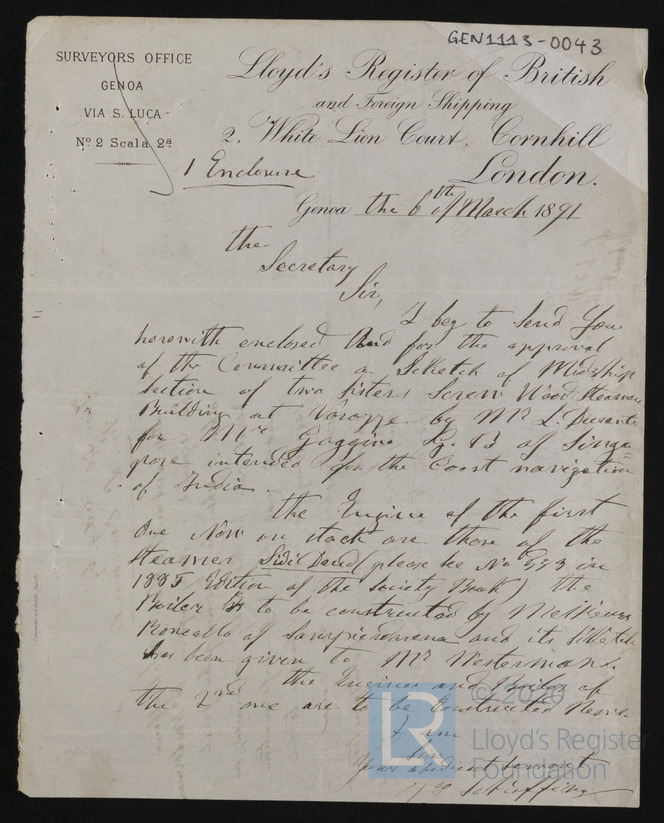 GEN1113-0043
SURVEYORS OFFICE
GENOA
VIA S. LUCA
Nº 2 Scala 2ª
Lloyd's Register of British
and Foreign Shipping
2, White Lion Court, Cornhill
London.
1 Enclosure
Genoa the 6th of March 1891
the
Secretary
Sir,
I beg to send you
herewith enclosed and for the approval
of the Committee a Sketch of Midship
section of two sisters Screw Wood Steamers
Building at Varazze by Mr L.
for Mr Gaggino G. B. of Singa=
pore intended for the Coast navigation
of India.
the Engine of the first
One Now on stock are those of the
Steamer Sidi Daoud (please see No 553 in
1885 Edition of the Society Book) the
Boiler is to be constructed by Messieurs
Roncallo of Sampierdarena and its Sketch
has been given to Mr Westerman.
the Engines and Boiler of
the 2nd one are to be Constructed New.
I am
Sir
Your obedient servant
© 2020
LR
Lloyd's Register
Foundation